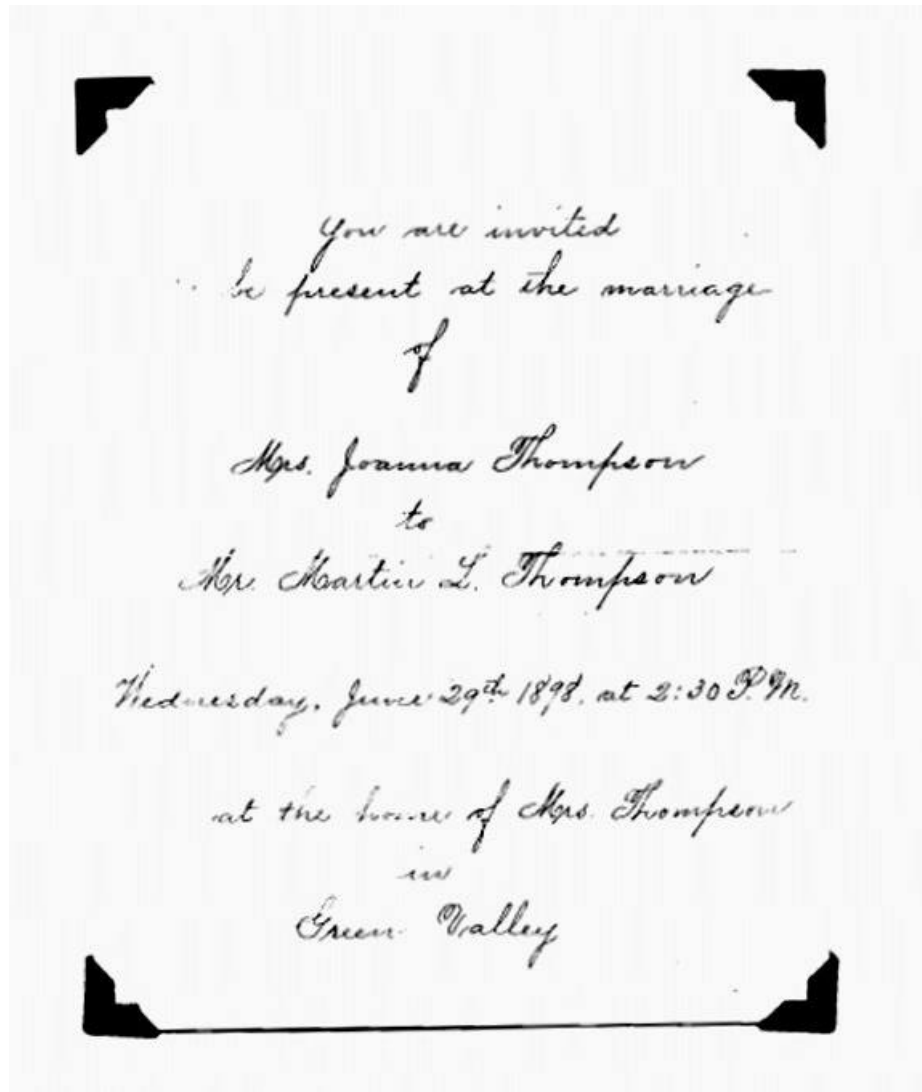 You are invited
be present at the marriage
of
Mrs. Joanna Thompson
to
Mr. Martin L. Thompson
Wednesday, June 29th 1898. at 2:30 P.M.
at the home of Mrs. Thompson
in
Green Valley